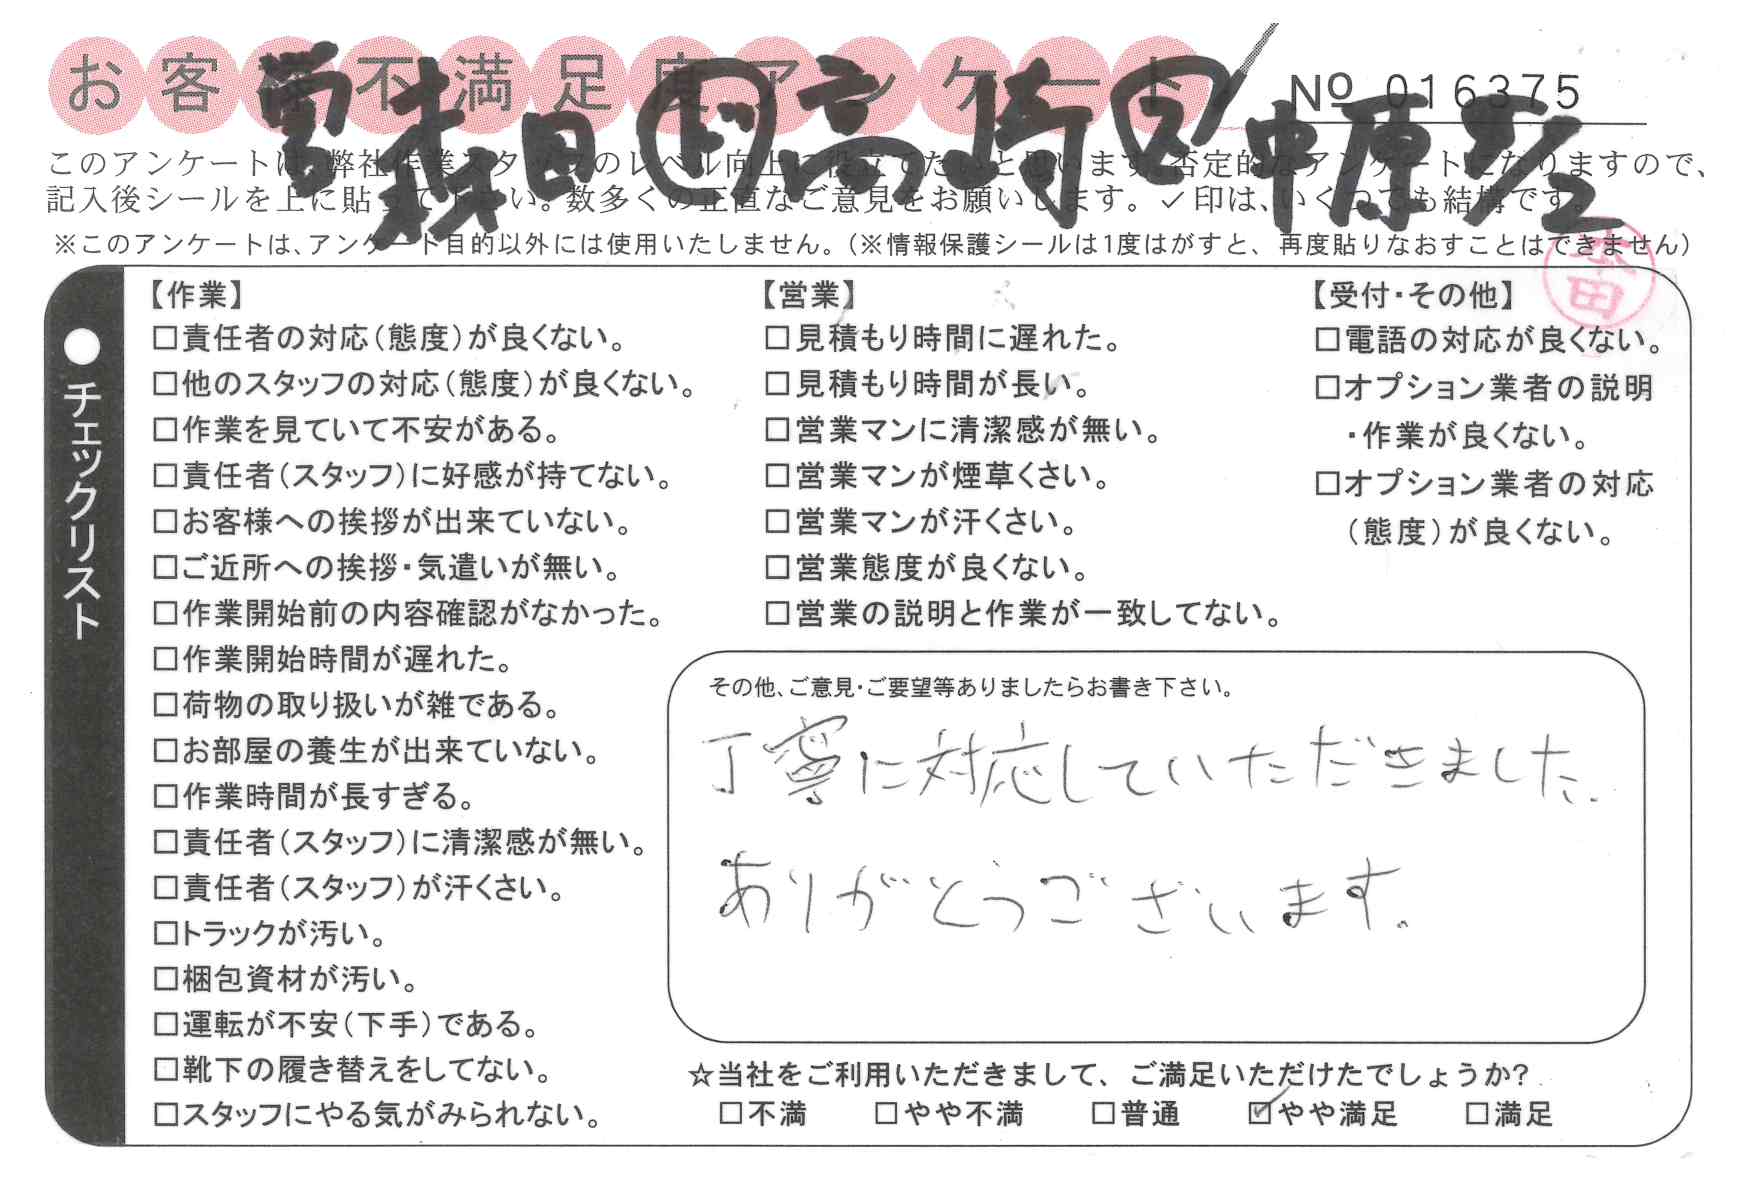 お客様不満足度アンケート
№ 016375
このアンケートは、弊社作業スタッフのレベル向上に役立てたいと思います。否定的なアンケートになりますので、
記入後シールを上に貼って下さい。数多くの正直なご意見をお願いします。✓印は、いくつでも結構です。
※このアンケートは、アンケート目的以外には使用いたしません。(※情報保護シールは1度はがすと、再度貼りなおすことはできません)
高崎 中原
本田
●チェックリスト
【作業】
□責任者の対応(態度)が良くない。
□他のスタッフの対応(態度)が良くない。
□作業を見ていて不安がある。
□責任者(スタッフ)に好感が持てない。
□お客様への挨拶が出来ていない。
□ご近所への挨拶・気遣いが無い。
□作業開始前の内容確認がなかった。
□作業開始時間が遅れた。
□荷物の取り扱いが雑である。
□お部屋の養生が出来ていない。
□作業時間が長すぎる。
□責任者(スタッフ)に清潔感が無い。
□責任者(スタッフ)が汗くさい。
□トラックが汚い。
□梱包資材が汚い。
□運転が不安(下手)である。
□靴下の履き替えをしてない。
□スタッフにやる気がみられない。
【営業】
□見積もり時間に遅れた。
□見積もり時間が長い。
□営業マンに清潔感が無い。
□営業マンが煙草くさい。
□営業マンが汗くさい。
□営業態度が良くない。
□営業の説明と作業が一致してない。
【受付・その他】
□電語の対応が良くない。
□オプション業者の説明
・作業が良くない。
□オプション業者の対応
(態度)が良くない。
その他、ご意見・ご要望等ありましたらお書き下さい。
丁寧に対応していただきました。
ありがとうございます。
☆当社をご利用いただきまして、ご満足いただけたでしょうか?
□不満 □やや不満 □普通 ☑やや満足 □満足